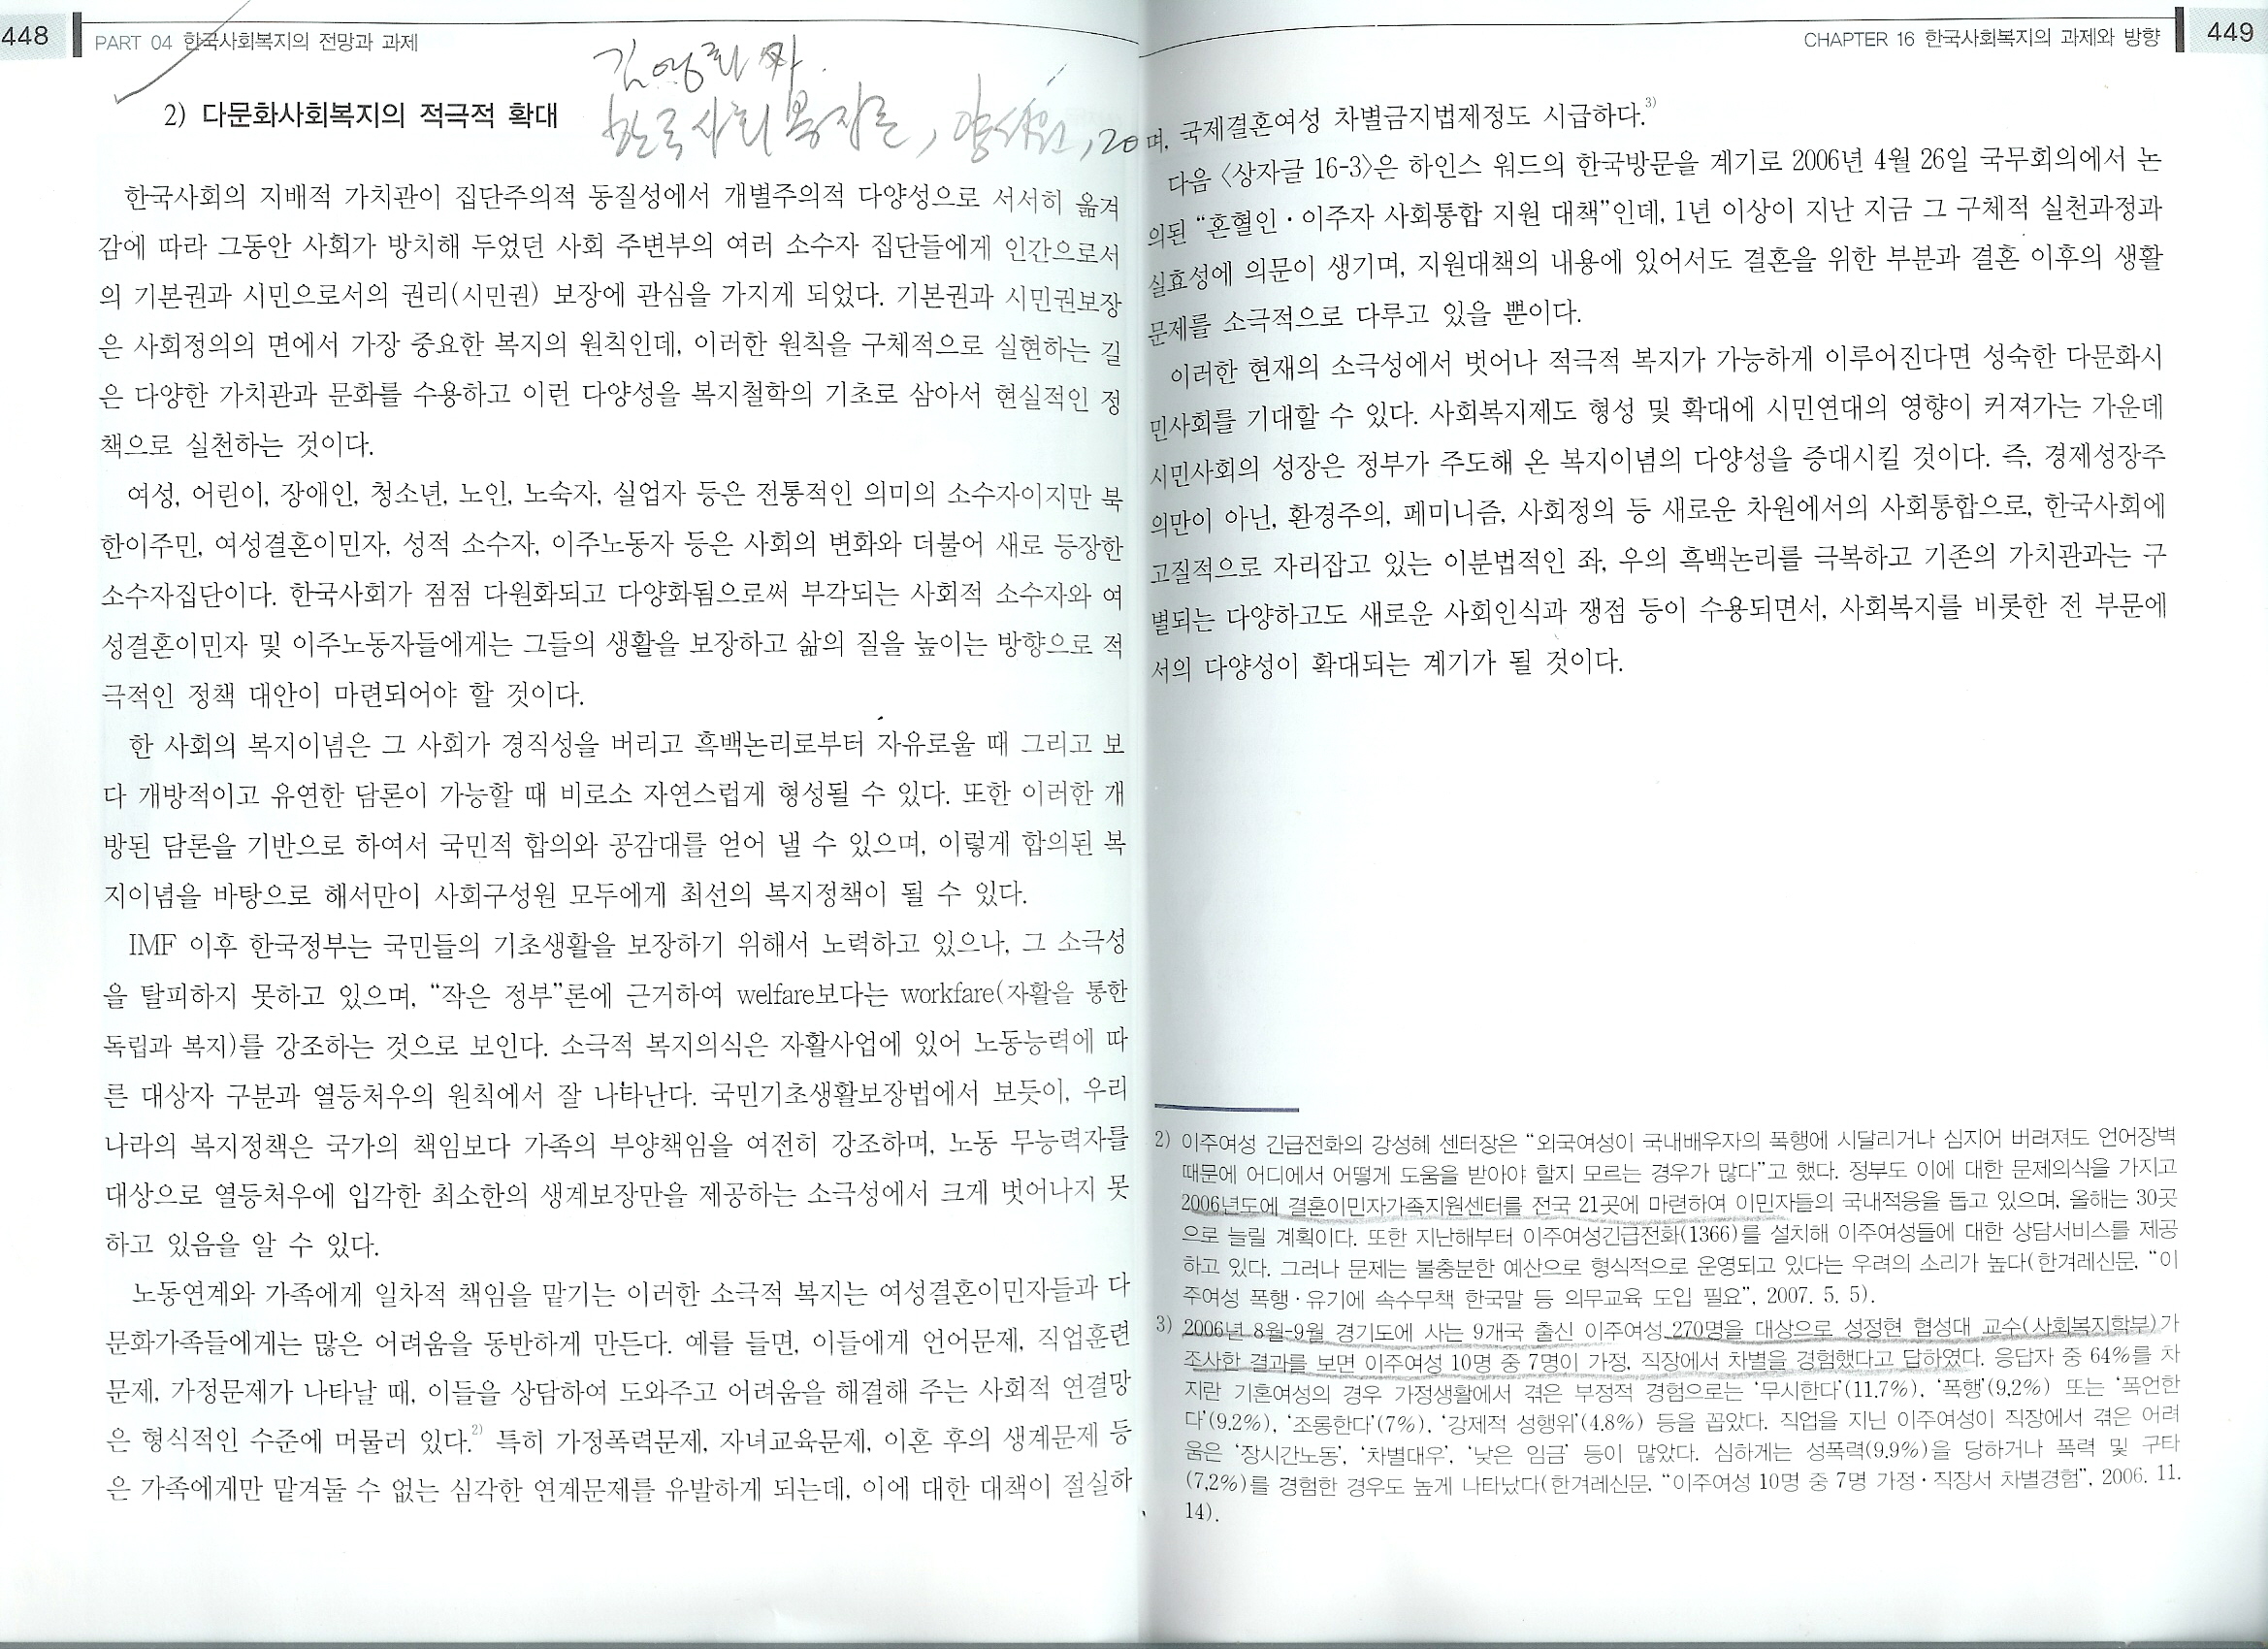 448
PART 04 한국사회복지의 전망과 과제
한국사회복지론, 양서원, 20
2) 다문화사회복지의 적극적 확대
한국사회의 지배적 가치관이 집단주의적 동질성에서 개별주의적 다양성으로 서서히 옮겨
감에 따라 그동안 사회가 방치해 두었던 사회 주변부의 여러 소수자 집단들에게 인간으로서
의 기본권과 시민으로서의 권리(시민권) 보장에 관심을 가지게 되었다. 기본권과 시민권보장
은 사회정의의 면에서 가장 중요한 복지의 원칙인데, 이러한 원칙을 구체적으로 실현하는 길
은 다양한 가치관과 문화를 수용하고 이런 다양성을 복지철학의 기초로 삼아서 현실적인 정
책으로 실천하는 것이다.
여성, 어린이, 장애인, 청소년, 노인, 노숙자, 실업자 등은 전통적인 의미의 소수자이지만 북
한이주민, 여성결혼이민자, 성적 소수자, 이주노동자 등은 사회의 변화와 더불어 새로 등장한
소수자집단이다. 한국사회가 점점 다원화되고 다양화됨으로써 부각되는 사회적 소수자와 여
성결혼이민자 및 이주노동자들에게는 그들의 생활을 보장하고 삶의 질을 높이는 방향으로 적
극적인 정책 대안이 마련되어야 할 것이다.
한 사회의 복지이념은 그 사회가 경직성을 버리고 흑백논리로부터 자유로울 때 그리고 보
다 개방적이고 유연한 담론이 가능할 때 비로소 자연스럽게 형성될 수 있다. 또한 이러한 개
방된 담론을 기반으로 하여서 국민적 합의와 공감대를 얻어 낼 수 있으며, 이렇게 합의된 복
지이념을 바탕으로 해서만이 사회구성원 모두에게 최선의 복지정책이 될 수 있다.
IMF 이후 한국정부는 국민들의 기초생활을 보장하기 위해서 노력하고 있으나, 그 소극성
을 탈피하지 못하고 있으며, “작은 정부”론에 근거하여 welfare보다는 workfare(자활을 통한
독립과 복지)를 강조하는 것으로 보인다. 소극적 복지의식은 자활사업에 있어 노동능력에 따
른 대상자 구분과 열등처우의 원칙에서 잘 나타난다. 국민기초생활보장법에서 보듯이, 우리
나라의 복지정책은 국가의 책임보다 가족의 부양책임을 여전히 강조하며, 노동 무능력자를
대상으로 열등처우에 입각한 최소한의 생계보장만을 제공하는 소극성에서 크게 벗어나지 못
하고 있음을 알 수 있다.
노동연계와 가족에게 일차적 책임을 맡기는 이러한 소극적 복지는 여성결혼이민자들과 다
문화가족들에게는 많은 어려움을 동반하게 만든다. 예를 들면, 이들에게 언어문제, 직업훈련
문제, 가정문제가 나타날 때, 이들을 상담하여 도와주고 어려움을 해결해 주는 사회적 연결망
은 형식적인 수준에 머물러 있다.2) 특히 가정폭력문제, 자녀교육문제, 이혼 후의 생계문제 등
은 가족에게만 맡겨둘 수 없는 심각한 연계문제를 유발하게 되는데, 이에 대한 대책이 절실하
CHAPTER 16 한국사회복지의 과제와 방향
449
며, 국제결혼여성 차별금지법제정도 시급하다.3)
다음 〈상자글 16-3〉은 하인스 워드의 한국방문을 계기로 2006년 4월 26일 국무회의에서 논
의된 “혼혈인·이주자 사회통합 지원 대책”인데, 1년 이상이 지난 지금 그 구체적 실천과정과
실효성에 의문이 생기며, 지원대책의 내용에 있어서도 결혼을 위한 부분과 결혼 이후의 생활
문제를 소극적으로 다루고 있을 뿐이다.
이러한 현재의 소극성에서 벗어나 적극적 복지가 가능하게 이루어진다면 성숙한 다문화시
민사회를 기대할 수 있다. 사회복지제도 형성 및 확대에 시민연대의 영향이 커져가는 가운데
시민사회의 성장은 정부가 주도해 온 복지이념의 다양성을 증대시킬 것이다. 즉, 경제성장주
의만이 아닌, 환경주의, 페미니즘, 사회정의 등 새로운 차원에서의 사회통합으로, 한국사회에
고질적으로 자리잡고 있는 이분법적인 좌, 우의 흑백논리를 극복하고 기존의 가치관과는 구
별되는 다양하고도 새로운 사회인식과 쟁점 등이 수용되면서, 사회복지를 비롯한 전 부문에
서의 다양성이 확대되는 계기가 될 것이다.
2) 이주여성 긴급전화의 강성혜 센터장은 “외국여성이 국내배우자의 폭행에 시달리거나 심지어 버려져도 언어장벽
때문에 어디에서 어떻게 도움을 받아야 할지 모르는 경우가 많다”고 했다. 정부도 이에 대한 문제의식을 가지고
2006년도에 결혼이민자가족지원센터를 전국 21곳에 마련하여 이민자들의 국내적응을 돕고 있으며, 올해는 30곳
으로 늘릴 계획이다. 또한 지난해부터 이주여성긴급전화(1366)를 설치해 이주여성들에 대한 상담서비스를 제공
하고 있다. 그러나 문제는 불충분한 예산으로 형식적으로 운영되고 있다는 우려의 소리가 높다(한겨레신문, “이
주여성 폭행·유기에 속수무책 한국말 등 의무교육 도입 필요”, 2007. 5. 5).
3) 2006년 8월-9월 경기도에 사는 9개국 출신 이주여성 270명을 대상으로 성정현 협성대 교수(사회복지학부)가
조사한 결과를 보면 이주여성 10명 중 7명이 가정, 직장에서 차별을 경험했다고 답하였다. 응답자 중 64%를 차
지란 기혼여성의 경우 가정생활에서 겪은 부정적 경험으로는 ‘무시한다’(11.7%), ‘폭행’(9.2%) 또는 ‘폭언한
다’(9.2%), ‘조롱한다’(7%), ‘강제적 성행위’(4.8%) 등을 꼽았다. 직업을 지닌 이주여성이 직장에서 겪은 어려
움은 ‘장시간노동’, ‘차별대우’, ‘낮은 임금’ 등이 많았다. 심하게는 성폭력(9.9%)을 당하거나 폭력 및 구타
(7.2%)를 경험한 경우도 높게 나타났다(한겨레신문, “이주여성 10명 중 7명 가정·직장서 차별경험”, 2006. 11.
14).